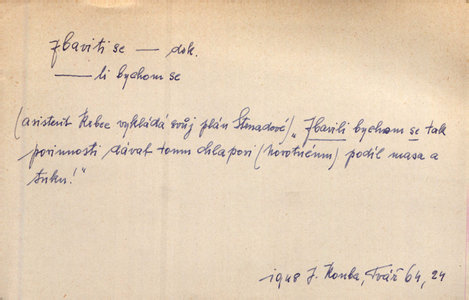 Zbaviti se — dok.
— li bychom se
(asistent Krbec vykládá svůj plán Štnadové) „Zbavili bychom se tak
povinnosti dávat tomu chlapovi (Novotnému) podíl masa a
tuku!“
1948 J. Konba, Tvář 64, 24